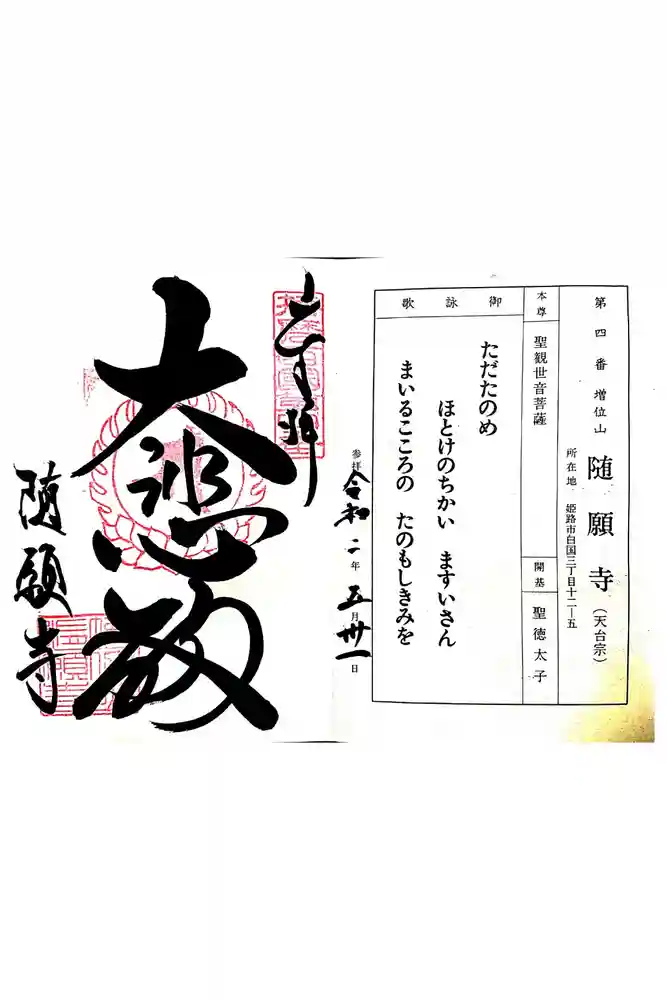 第四番 増位山 随願寺 (天台宗)
所在地 姫路市白国三丁目十二ー五
本尊 聖観世音菩薩
開基 聖徳太子
御詠歌
ただたのめ
ほとけのちかい ますいさん
まいるこころの たのもしきみを
参拝 令和二年五月卅一日
奉拝
大悲殿
随願寺